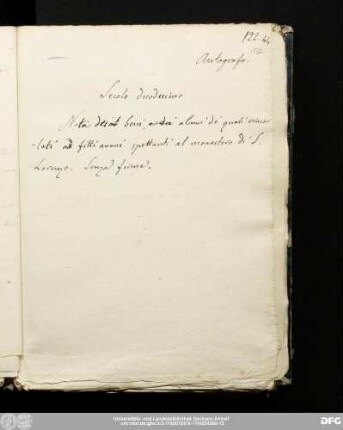 122.
Autografo.
Secolo duodecimo
Nota beni, alcuni de' quali enunc-
-lati ad fitti annui spettanti al monastero di S.
Lorenzo. Senza firme.
Universitäts- und Landesbibliothek Sachsen-Anhalt
DFG